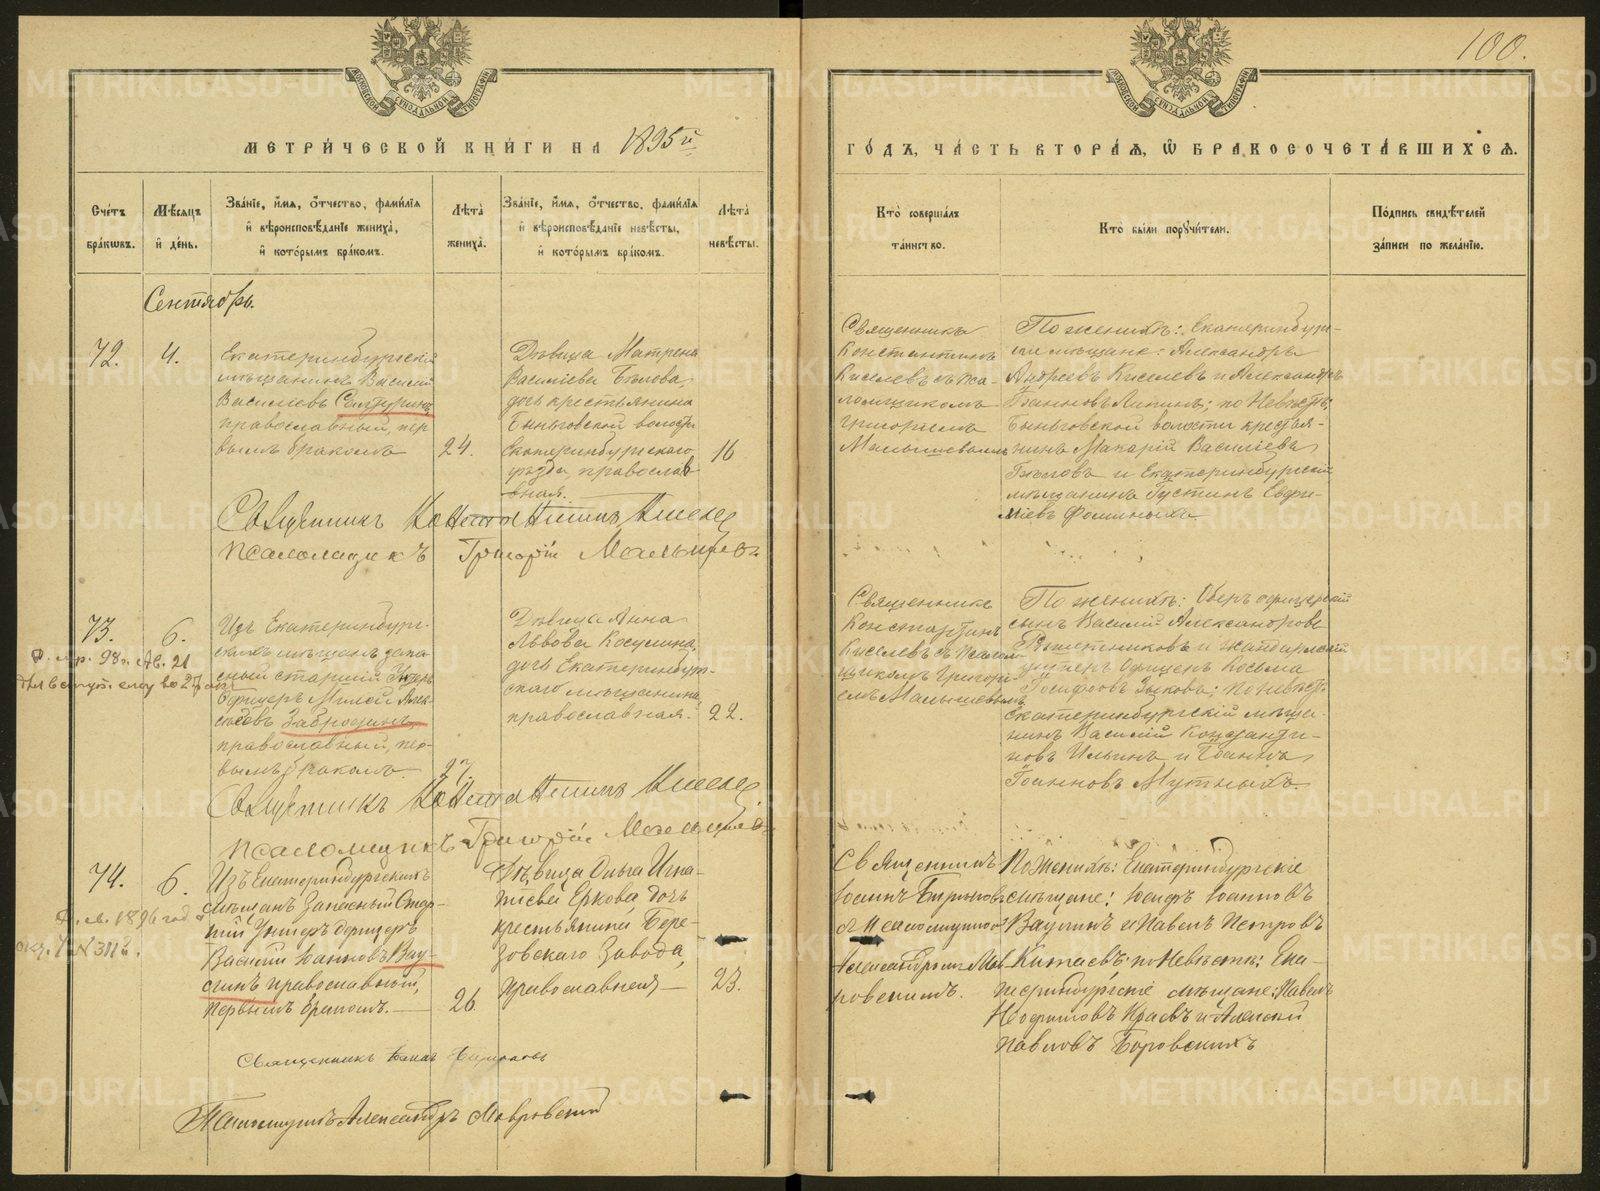 100.
МОСКОВСКОЙ СѴНОДАЛЬНОЙ ТИПОГРАФІИ
МЕТРИ́ЧЕСКОЙ КНИ́ГИ НА 1895й
ГО́ДЪ, ЧА́СТЬ ВТОРА́Я, Ѿ БРАКОСОЧЕТА́ВШИХСЯ.
Сче́тъ бра́кѡвъ.
Мѣ́сяцъ и҆ де́нь.
Зва́нїе, и҆́мя, ѻ҆́тчество, фами́лїя
и҆ вѣроисповѣ́данїе жениха̀,
и҆ кото́рымъ бра́комъ.
Лѣта̀ жениха̀.
Зва́нїе, и҆́мя, ѻ҆́тчество, фами́лїя
и҆ вѣроисповѣ́данїе невѣ́сты,
и҆ кото́рымъ бра́комъ.
Лѣта̀ невѣ́сты.
Кто̀ соверша́лъ
та́инство.
Кто̀ бы́ли порꙋчи́тели.
По́дпись свидѣ́телей
за́писи по жела́нїю.
Сентябрь.
72.
4.
Екатеринбургскій
мѣщанинъ Василій
Василіевъ
православный, пер
вымъ бракомъ
24.
Дѣвица Матрена
Василіева Бѣлова,
дочь крестьянина
Быньговской волости
Екатеринбургскаго
уѣзда, православ
ная.
16
Священникъ
Константинъ
Киселевъ съ пса-
ломщикомъ
Григоріемъ
Малышевымъ
По женихѣ: Екатеринбург-
скіе мѣщане: Александръ
Андреевъ Киселевъ и Александръ
Іоанновъ Липинъ; по Невѣстѣ:
Быньговской волости крестья-
нинъ Макарій Василіевъ
Бѣловъ и Екатеринбургскій
мѣщанинъ Густинъ Евфи-
міевъ Фоминыхъ
Священникъ Константинъ Киселевъ
Псаломщикъ Григорій Малышевъ
73.
6.
Изъ Екатеринбург-
скихъ мѣщанъ запа-
сный старшій Унтеръ
Офицеръ Алек-
сѣевъ Забродинъ,
православный, пер-
вымъ бракомъ.
27.
Дѣвица Анна
Львова Косулина,
дочь Екатеринбург-
скаго мѣщанина,
православная.
22.
Священникъ
Константинъ
Киселевъ съ Псалом-
щикомъ Григорі-
емъ Малышевымъ
По женихѣ: Оберъ офицерскій
сынъ Василій Александровъ
и жандармскій
унтеръ Офицеръ Косьма
Іосифовъ Зыковъ; по невѣстѣ:
Екатеринбургскій мѣща-
нинъ Василій Константи-
новъ Ильинъ и Іоаннъ
Іоанновъ Мутныхъ.
Священникъ Константинъ Киселевъ
Псаломщикъ Григорій Малышевъ
74.
6.
Изъ Екатеринбургскихъ
мѣщанъ Запасный Стар-
шій Унтеръ Офицеръ
Василій Іоанновъ Вау-
линъ православный,
первымъ бракомъ.
26.
Дѣвица Ольга Игна-
тіева Еркова, дочь
крестьянина Бере-
зовскаго Завода,
православная
23.
Священникъ
Іоаннъ
съ Псаломщикомъ
Александромъ Мав-
ровскимъ.
По Женихѣ: Екатеринбургскіе
мѣщане: Іоанновъ
Ваулинъ и Павелъ Петровъ
Китаевъ; по Невѣстѣ: Ека-
теринбургскіе мѣщане: Павелъ
и Алексѣй
Павловъ Боровскихъ
Священникъ Іоаннъ
Псаломщикъ Александръ Мавровский
METRIKI.GASO-URAL.RU